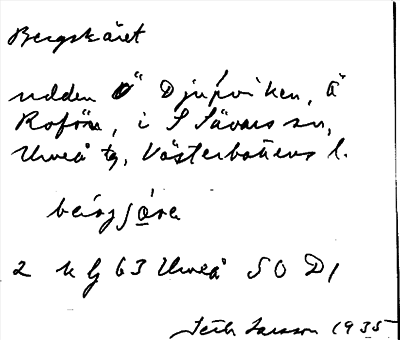 Bergskäret
udden Ö Djupviken, å
Rofön, i S Sävars sn,
Umeå tg, Västerbottens l.
2 k G 63 Umeå S O D 1
Larsson 1935